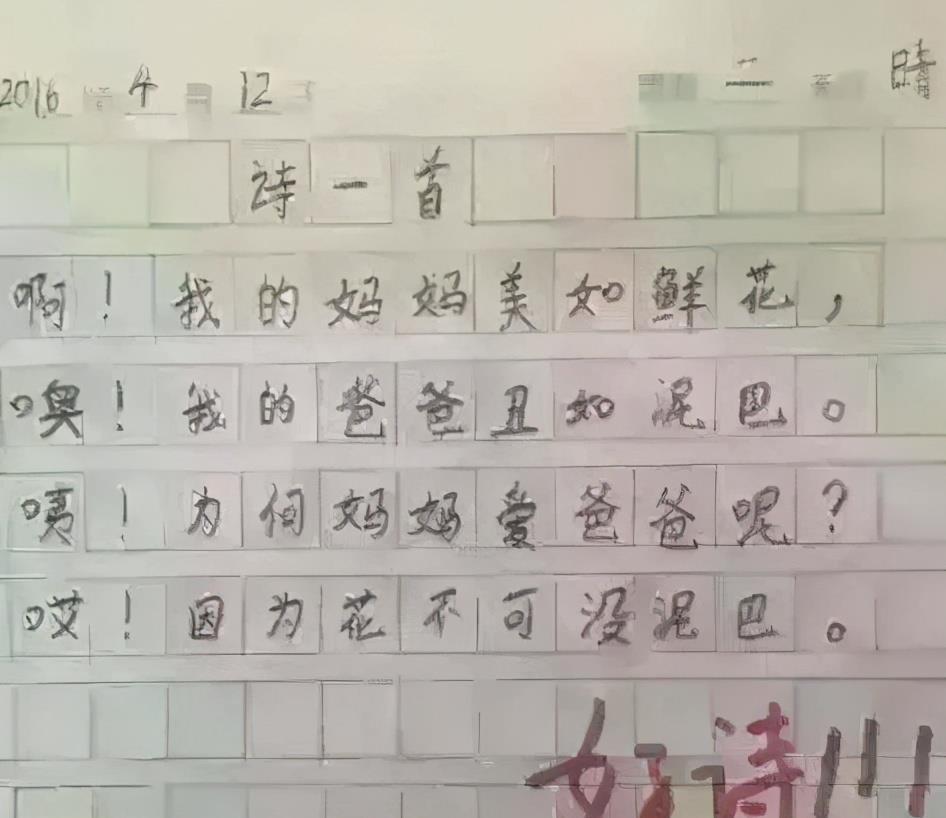 2016 4 12 晴
诗一首
啊！我的妈妈美如鲜花，
噢！我的爸爸丑如泥巴。
咦！为何妈妈爱爸爸呢？
哎！因为花不可没泥巴。
好诗！！！